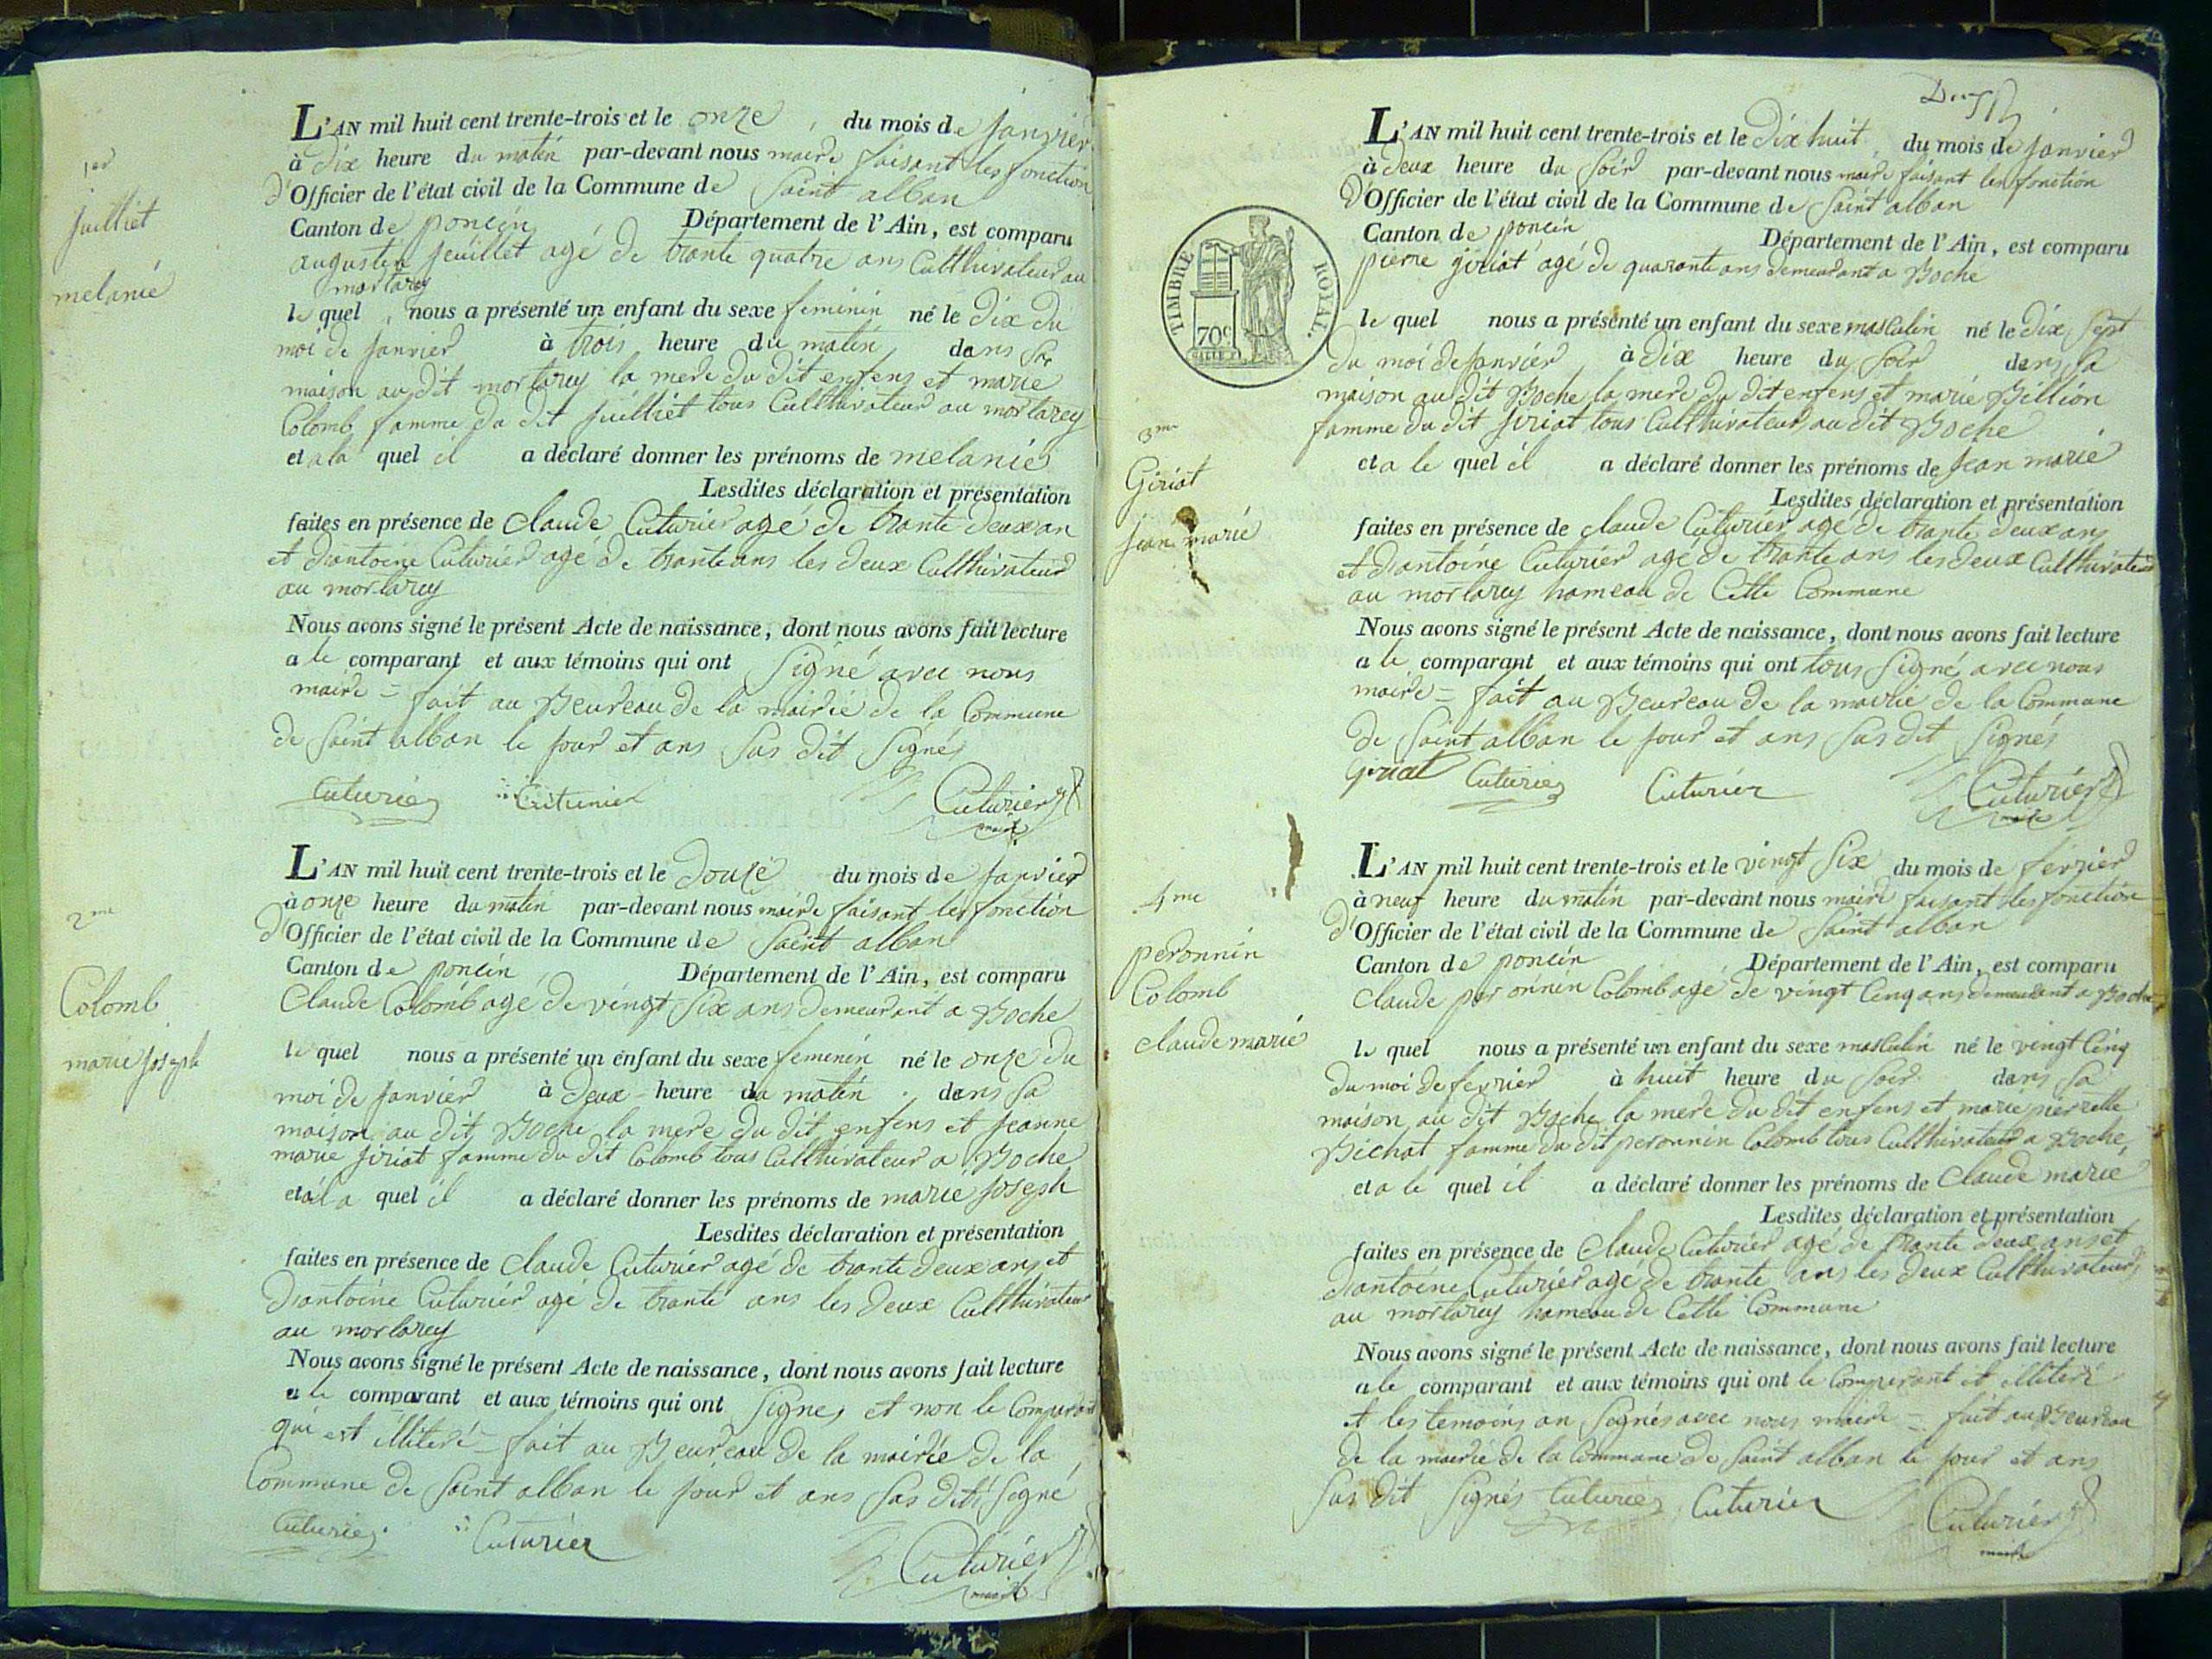 1er
juilliet
melanié
L'AN mil huit cent trente-trois et le onze, du mois de janvier
à dix heure du matin par-devant nous maire faisant les fonction
d'Officier de l'état civil de la Commune de Saint alban
Canton de poncin Département de l'Ain, est comparu
augustin jeuillet agé de trante quatre ans Cullthivateur au
mortarey
le quel, nous a présenté un enfant du sexe feminin né le dix du
moi de janvier à trois heure du matin, dans sa
maison au dit mortarey la mere du dit enfens et marie
Colomb famme du dit juilliet tous Cullthivateur au mortarey
et a la quel il a déclaré donner les prénoms de melanié
Lesdites déclaration et présentation
faites en présence de claude Cuturier agé de trante deux an
et d'antoine Cuturier agé de trante ans les deux Cullthivateur
au mortarey
Nous avons signé le présent Acte de naissance, dont nous avons fait lecture
a le comparant et aux témoins qui ont Signé avec nous
maire = fait au Beureau de la mairie de la Commune
de Saint alban le jour et ans Sus dit Signés
Cuturier Cuturier Cuturier
maire
2me
Colomb
marie joseph
L'AN mil huit cent trente-trois et le douze du mois de janvier
à onze heure du matin par-devant nous maire faisant les fonction
d'Officier de l'état civil de la Commune de Saint alban
Canton de poncin Département de l'Ain, est comparu
Claude Colomb agé de vingt Six ans demeurant a Boche
le quel nous a présenté un enfant du sexe feminin né le onze du
moi de janvier à deux heure du matin. dans sa
maison au dit Boche la mere du dit enfens et jeanne
marie jiriat famme du dit Colomb tous Cullthivateur a Boche
et a la quel il a déclaré donner les prénoms de marie joseph
Lesdites déclaration et présentation
faites en présence de claude Cuturier agé de trante deux ans et
d'antoine Cuturier agé de trante ans les deux Cullthivateur
au mortarey
Nous avons signé le présent Acte de naissance, dont nous avons fait lecture
a le comparant et aux témoins qui ont Signes et non le Comparant
qui est illiteré = fait au Beureau de la mairie de la
Commune de Saint alban le jour et ans Sus dit Signé
Cuturier Cuturier Cuturier
maire
TIMBRE ROYAL.
70c
L'AN mil huit cent trente-trois et le dix huit, du mois de janvier
à deux heure du Soir par-devant nous maire faisant les fonction
d'Officier de l'état civil de la Commune de Saint alban
Canton de poncin Département de l'Ain, est comparu
pierre giriat agé de quarante ans demeurant a Boche
le quel nous a présenté un enfant du sexe masculin né le dix Sept
du moi de janvier à dix heure du Soir dans sa
maison au dit Boche la mere du dit enfens et marie Billion
famme du dit jiriat tous Cullthivateur au dit Boche
3me
Giriat
jean marie
et a le quel il a déclaré donner les prénoms de jean marié
Lesdites déclaration et présentation
faites en présence de claude Cuturier agé de trante deux ans
et d'antoine Cuturier agé de trante ans les deux Cullthivateur
au mortarey hameau de Cette Commune
Nous avons signé le présent Acte de naissance, dont nous avons fait lecture
a le comparant et aux témoins qui ont tous Signé avec nous
maire = fait au Beureau de la mairie de la Commune
de Saint alban le jour et ans Sus dit Signés
Giriat Cuturier Cuturier Cuturier
maire
4me
peronnin
Colomb
claude marié
L'AN mil huit cent trente-trois et le vingt Six du mois de fevrier
à neuf heure du matin par-devant nous maire faisant les fonction
d'Officier de l'état civil de la Commune de Saint alban
Canton de poncin Département de l'Ain, est comparu
Claude peronnin Colomb agé de vingt Cinq ans demeurant a Boche
le quel nous a présenté un enfant du sexe masculin né le vingt Cinq
du moi de fevrier à huit heure du Soir dans sa
maison au dit Boche la mere du dit enfens et marie pierrette
Bichat famme du dit peronnin Colomb tous Cullthivateur a Boche
et a le quel il a déclaré donner les prénoms de Claude marié
Lesdites déclaration et présentation
faites en présence de Claude Cuturier agé de trante deux ans et
d'antoine Cuturier agé de trante ans les deux Cullthivateur
au mortarey hameau de Cette Commune
Nous avons signé le présent Acte de naissance, dont nous avons fait lecture
a le comparant et aux témoins qui ont le Comparant et illiteré
et les temoins on Signés avec nous maire = fait au Beureau
de la mairie de la Commune de Saint alban le jour et ans
Sus dit Signés Cuturier Cuturier Cuturier
maire